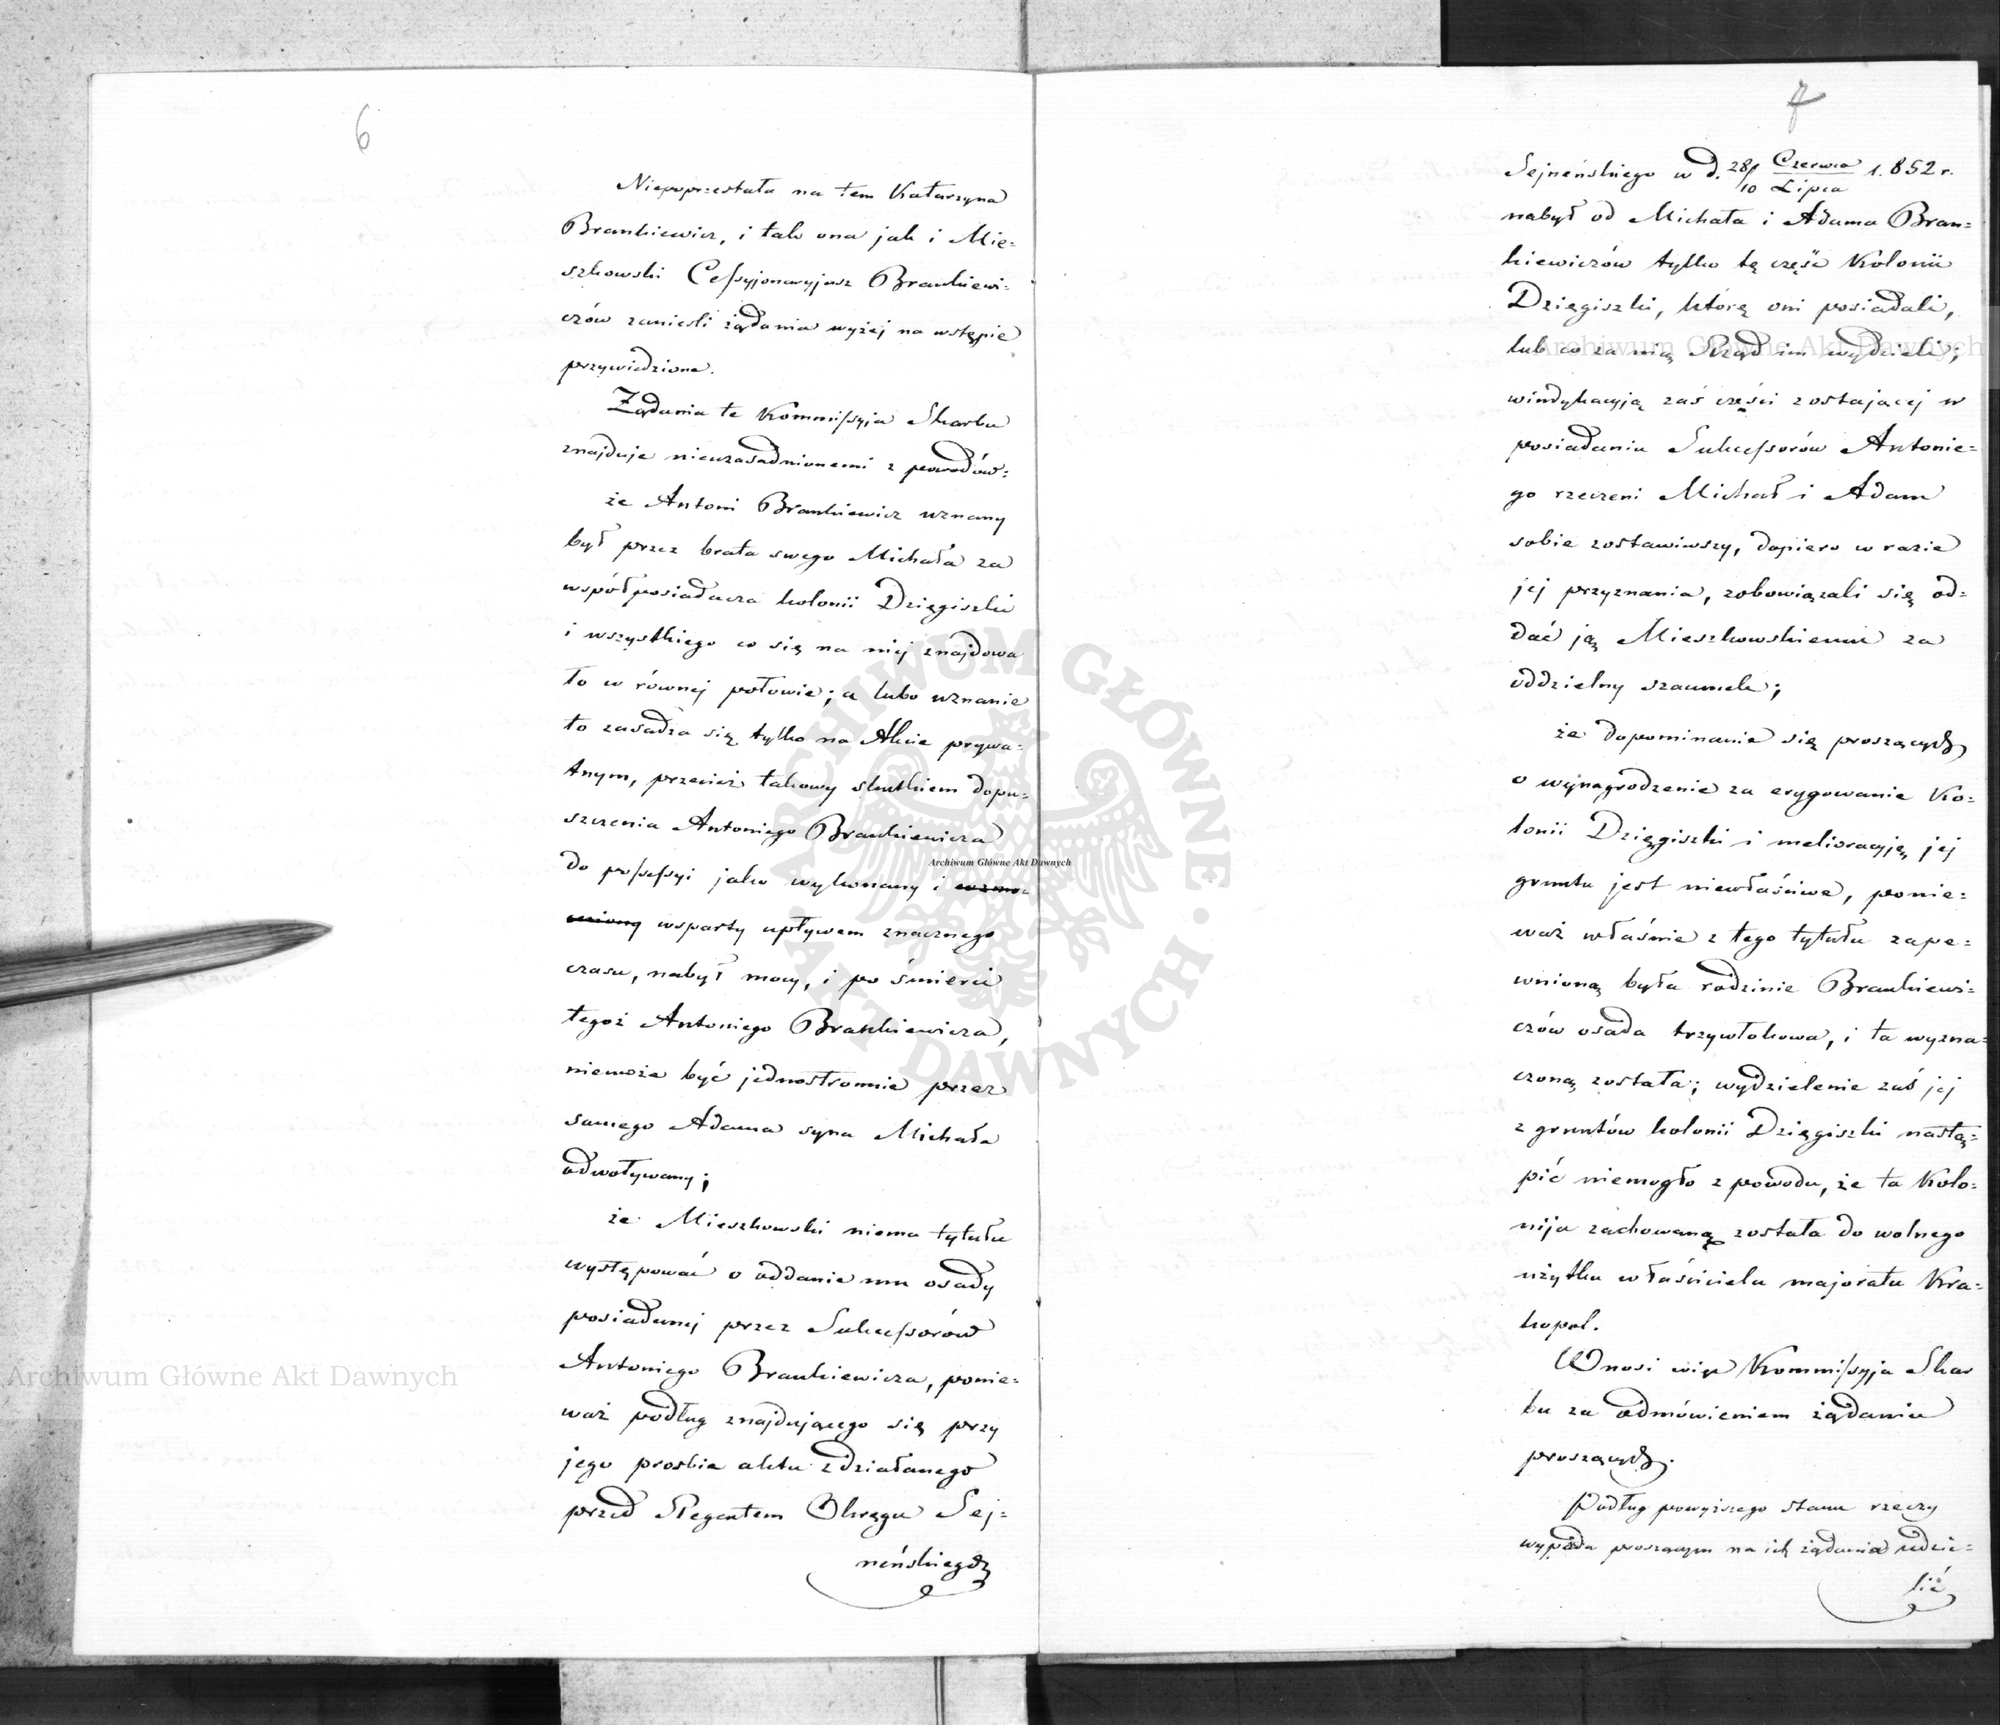 6
Niepoprzestała na tem Katarzyna
Brankiewicz, i tak ona jak i Mie=
szkowski Cessyjonaryjusz Brankiewi=
czów zanieśli żądania wyżej na wstępie
przywiedzione.
Żądania te Kommissyja Skarbu
znajduje nieuzasadnionemi z powodów:
że Antoni Brankiewicz uznany
był przez brata swego Michała za
współposiadacza kolonii Dzięgiszki
i wszystkiego co się na niej znajdowa
ło w równej połowie; a lubo uznanie
to zasadza się tylko na Akcie prywa=
tnym, przecież takowy skutkiem dopu=
szczenia Antoniego Brankiewicza
do possessyi jako wykonany i wzmo=
cniony wsparty upływem znacznego
czasu, nabył mocy, i po śmierci
tegoż Antoniego Brankiewicza,
niemoże być jednostronnie przez
samego Adama syna Michała
odwoływany;
że Mieszkowski niema tytułu
występować o oddanie mu osady
posiadanej przez Sukcessorów
Antoniego Brankiewicza, ponie=
waż podług znajdującego się przy
jego prośbie aktu zdziałanego
przed Regentem Okręgu Sej=
neńskiego
7
Sejneńskiego w d. 28/10 Czerwca/Lipca 1.852 r.
nabył od Michała i Adama Bran=
kiewiczów tylko tę część Kolonii
Dzięgiszki, którą oni posiadali,
lub co za nią Rząd im wydzieli;
windykacyją zaś części zostającej w
posiadaniu Sukcessorów Antonie=
go rzeczeni Michał i Adam
sobie zostawiwszy, dopiero w razie
jej przyznania, zobowiązali się od=
dać ją Mieszkowskiemu za
oddzielny szacunek;
że dopominanie się proszących
o wynagrodzenie za erygowanie Ko=
lonii Dzięgiszki i melioracyję jej
gruntu jest niewłaściwe, ponie=
waż właśnie z tego tytułu zape=
wnioną była rodzinie Brankiewi=
czów osada trzywłokowa, i ta wyzna=
czoną została; wydzielenie zaś jej
z gruntów kolonii Dzięgiszki nastą=
pić niemogło z powodu, że ta Kolo=
nija zachowaną została do wolnego
użytku właściciela majoratu Kra=
kopol.
Wnosi więc Kommissyja Skar
bu za odmówieniem żądania
proszących.
Podług powyższego stanu rzeczy
wypada proszącym na ich żądania udzie=
lić
Archiwum Główne Akt Dawnych
Archiwum Główne Akt Dawnych
Archiwum Główne Akt Dawnych
ARCHIWUM GŁÓWNE
AKT DAWNYCH